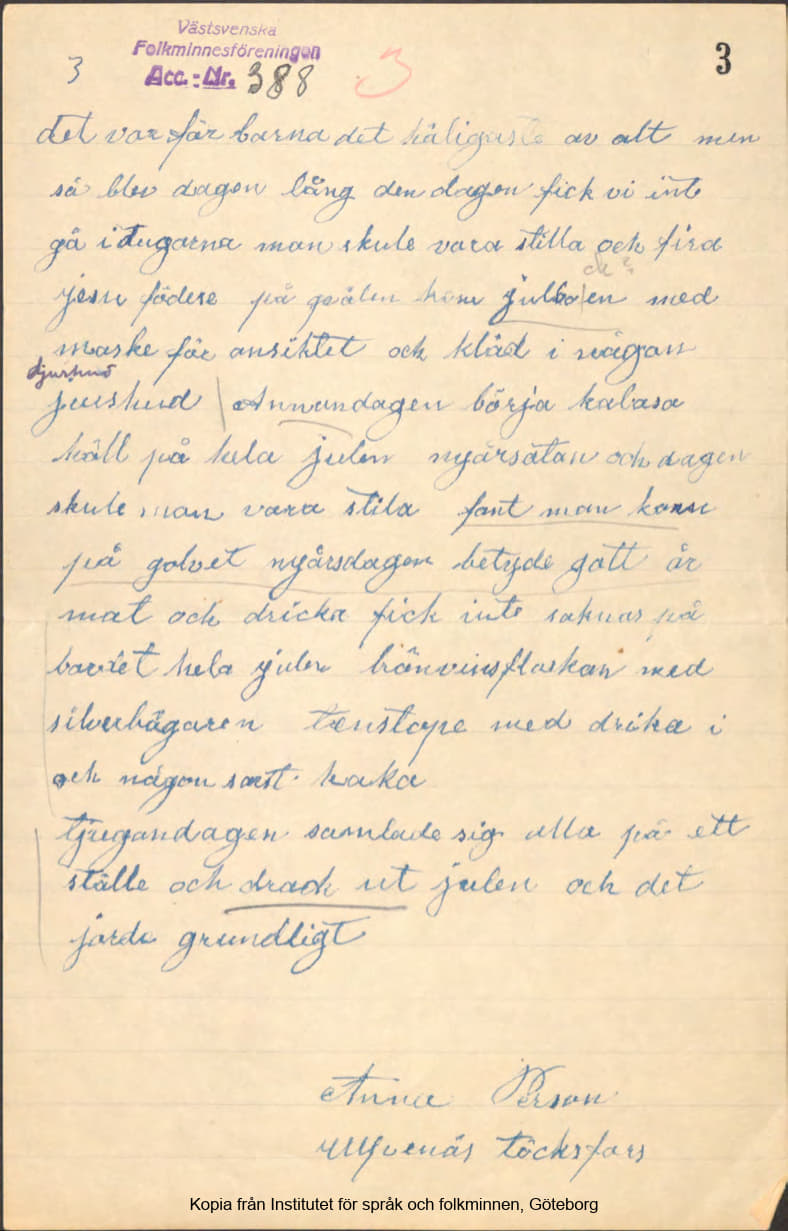 Västsvenska
Folkminnesföreningen
Acc.-Nr. 388
3
3
3
det var för barna det häligaste av alt men
så blev dagen lång den dagen fick vi inte
gå i stugarna man skule vara stilla och fira
jesu födese på qvälen kom julbo|en med
ck?
maske för ansiktet och kläd i någon
djurhud
jurshud | Annandagen börja kalasa
håll på hela julen nyårsatan och dagen
skule man vara stila fant man korn
på golvet nyårsdagen betyde gott år
mat och dricka fick inte saknas på
bordet hela julen bränvinsflaskan med
silverbägaren tenstope med drika i
och någon sorst kaka
tjugondagen samlade sig alla på ett
ställe och drack ut julen och det
jorde grundligt
Anna Person
töcksfors
Kopia från Institutet för språk och folkminnen, Göteborg